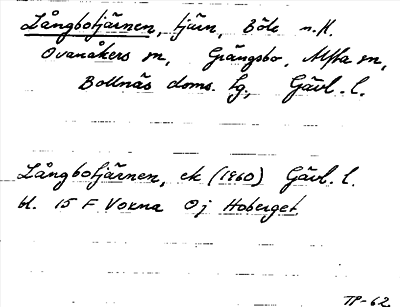 Långbotjärnen, tjärn, Böle n.H.
Ovanåkers sn, Grängsbo, Alfta sn,
Bollnäs doms. tg, Gävl. l.
Långbotjärnen, ek (1960) Gävl. l.
bl. 15 F Voxna 0 j Hoberget
TP-62